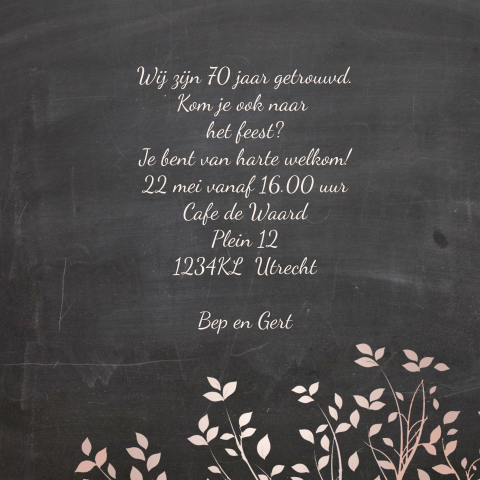 Wij zijn 70 jaar getrouwd.
Kom je ook naar
het feest?
Je bent van harte welkom!
22 mei vanaf 16.00 uur
Cafe de Waard
Plein 12
1234KL Utrecht
Bep en Gert